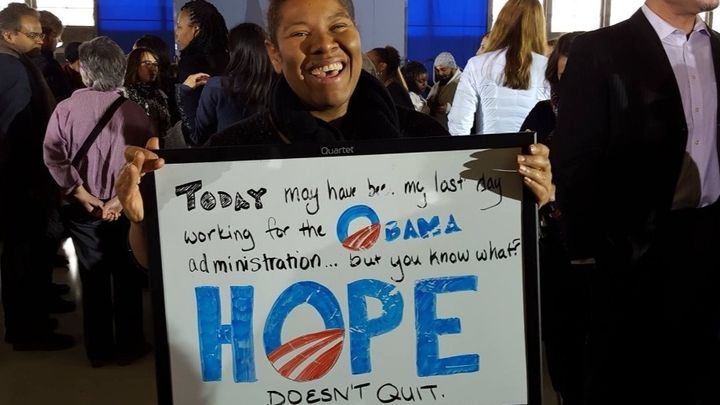 Quartet
TODAY may have be.. my last day
working for the OBAMA
administration... but you know what?
HOPE
DOESN'T QUIT.